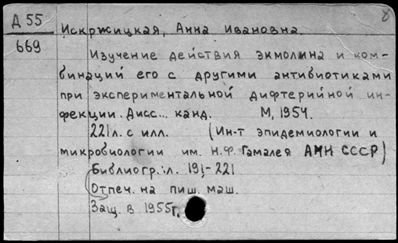 Д 55
669
8
Искржицкая, Анна Ивановна.
Изучение действия экмолина и ком-
бинаций его с другими антибиотиками
при экспериментальной дифтерийной ин-
фекции. Дисс... канд. М, 1954.
221л. с илл. (Ин-т эпидемиологии и
микробиологии им. Н.Ф. Гамалея АМН СССР)
Библиогр.: л. 191-221
Отпеч. на пиш. маш.
Защ. в 1955г.